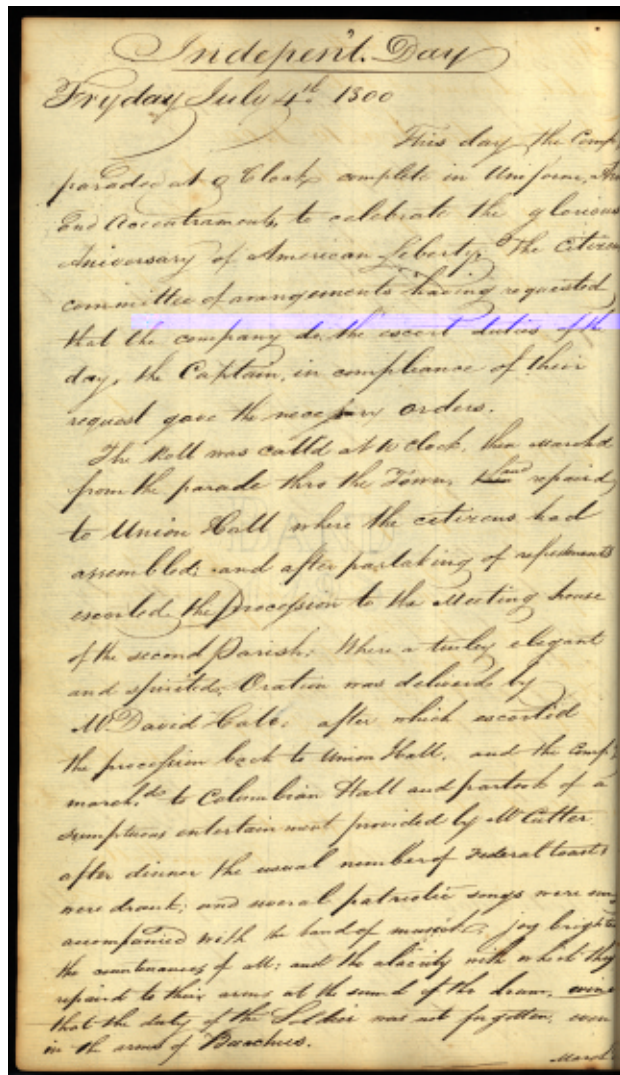 Indepent. Day
Fryday July 4th. 1800
This day the Comp
paraded at 9 Cloak complete in Uniform,
and Accontraments, to celebrate the glorious
Aniversary of American Liberty. The Citizen
committee of arangements having requested
that the company do the escort duties of the
day, the Captain, in compliance of their
request gave the necessary orders.
The Roll was calld at 10 Clock, then marchd
from the parade thro the Town, and repaird
to Union Hall where the citizens had
assembled; and after partaking of refreshments
escorted the procession to the Meeting house
of the second Parish: Where a truley elegant
and spirited, Oration was deliverd by
Mr David after which escorted
the procession back to Union Hall, and the Comp.
march.d to Columbian Hall and partook of a
sumptuous entertainment provided by Mr Cutter
after dinner the usual number of Federal toasts
were drank; and several patriotic songs were sun
accompanied with the band of musick; joy brighten
the countenances of all; and the alacrity with which they
repaird to their arms at the sound of the drum,
that the duty of the Soldier was not forgotten, even
in the arms of Bacchus.
March